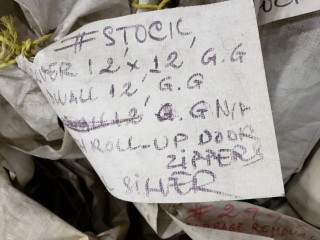 # STOCK
12'x12' G.G
WALL 12' G.G
G.G N/A
ROLL-UP DOOR
ZIPPERS
SILVER
# 29